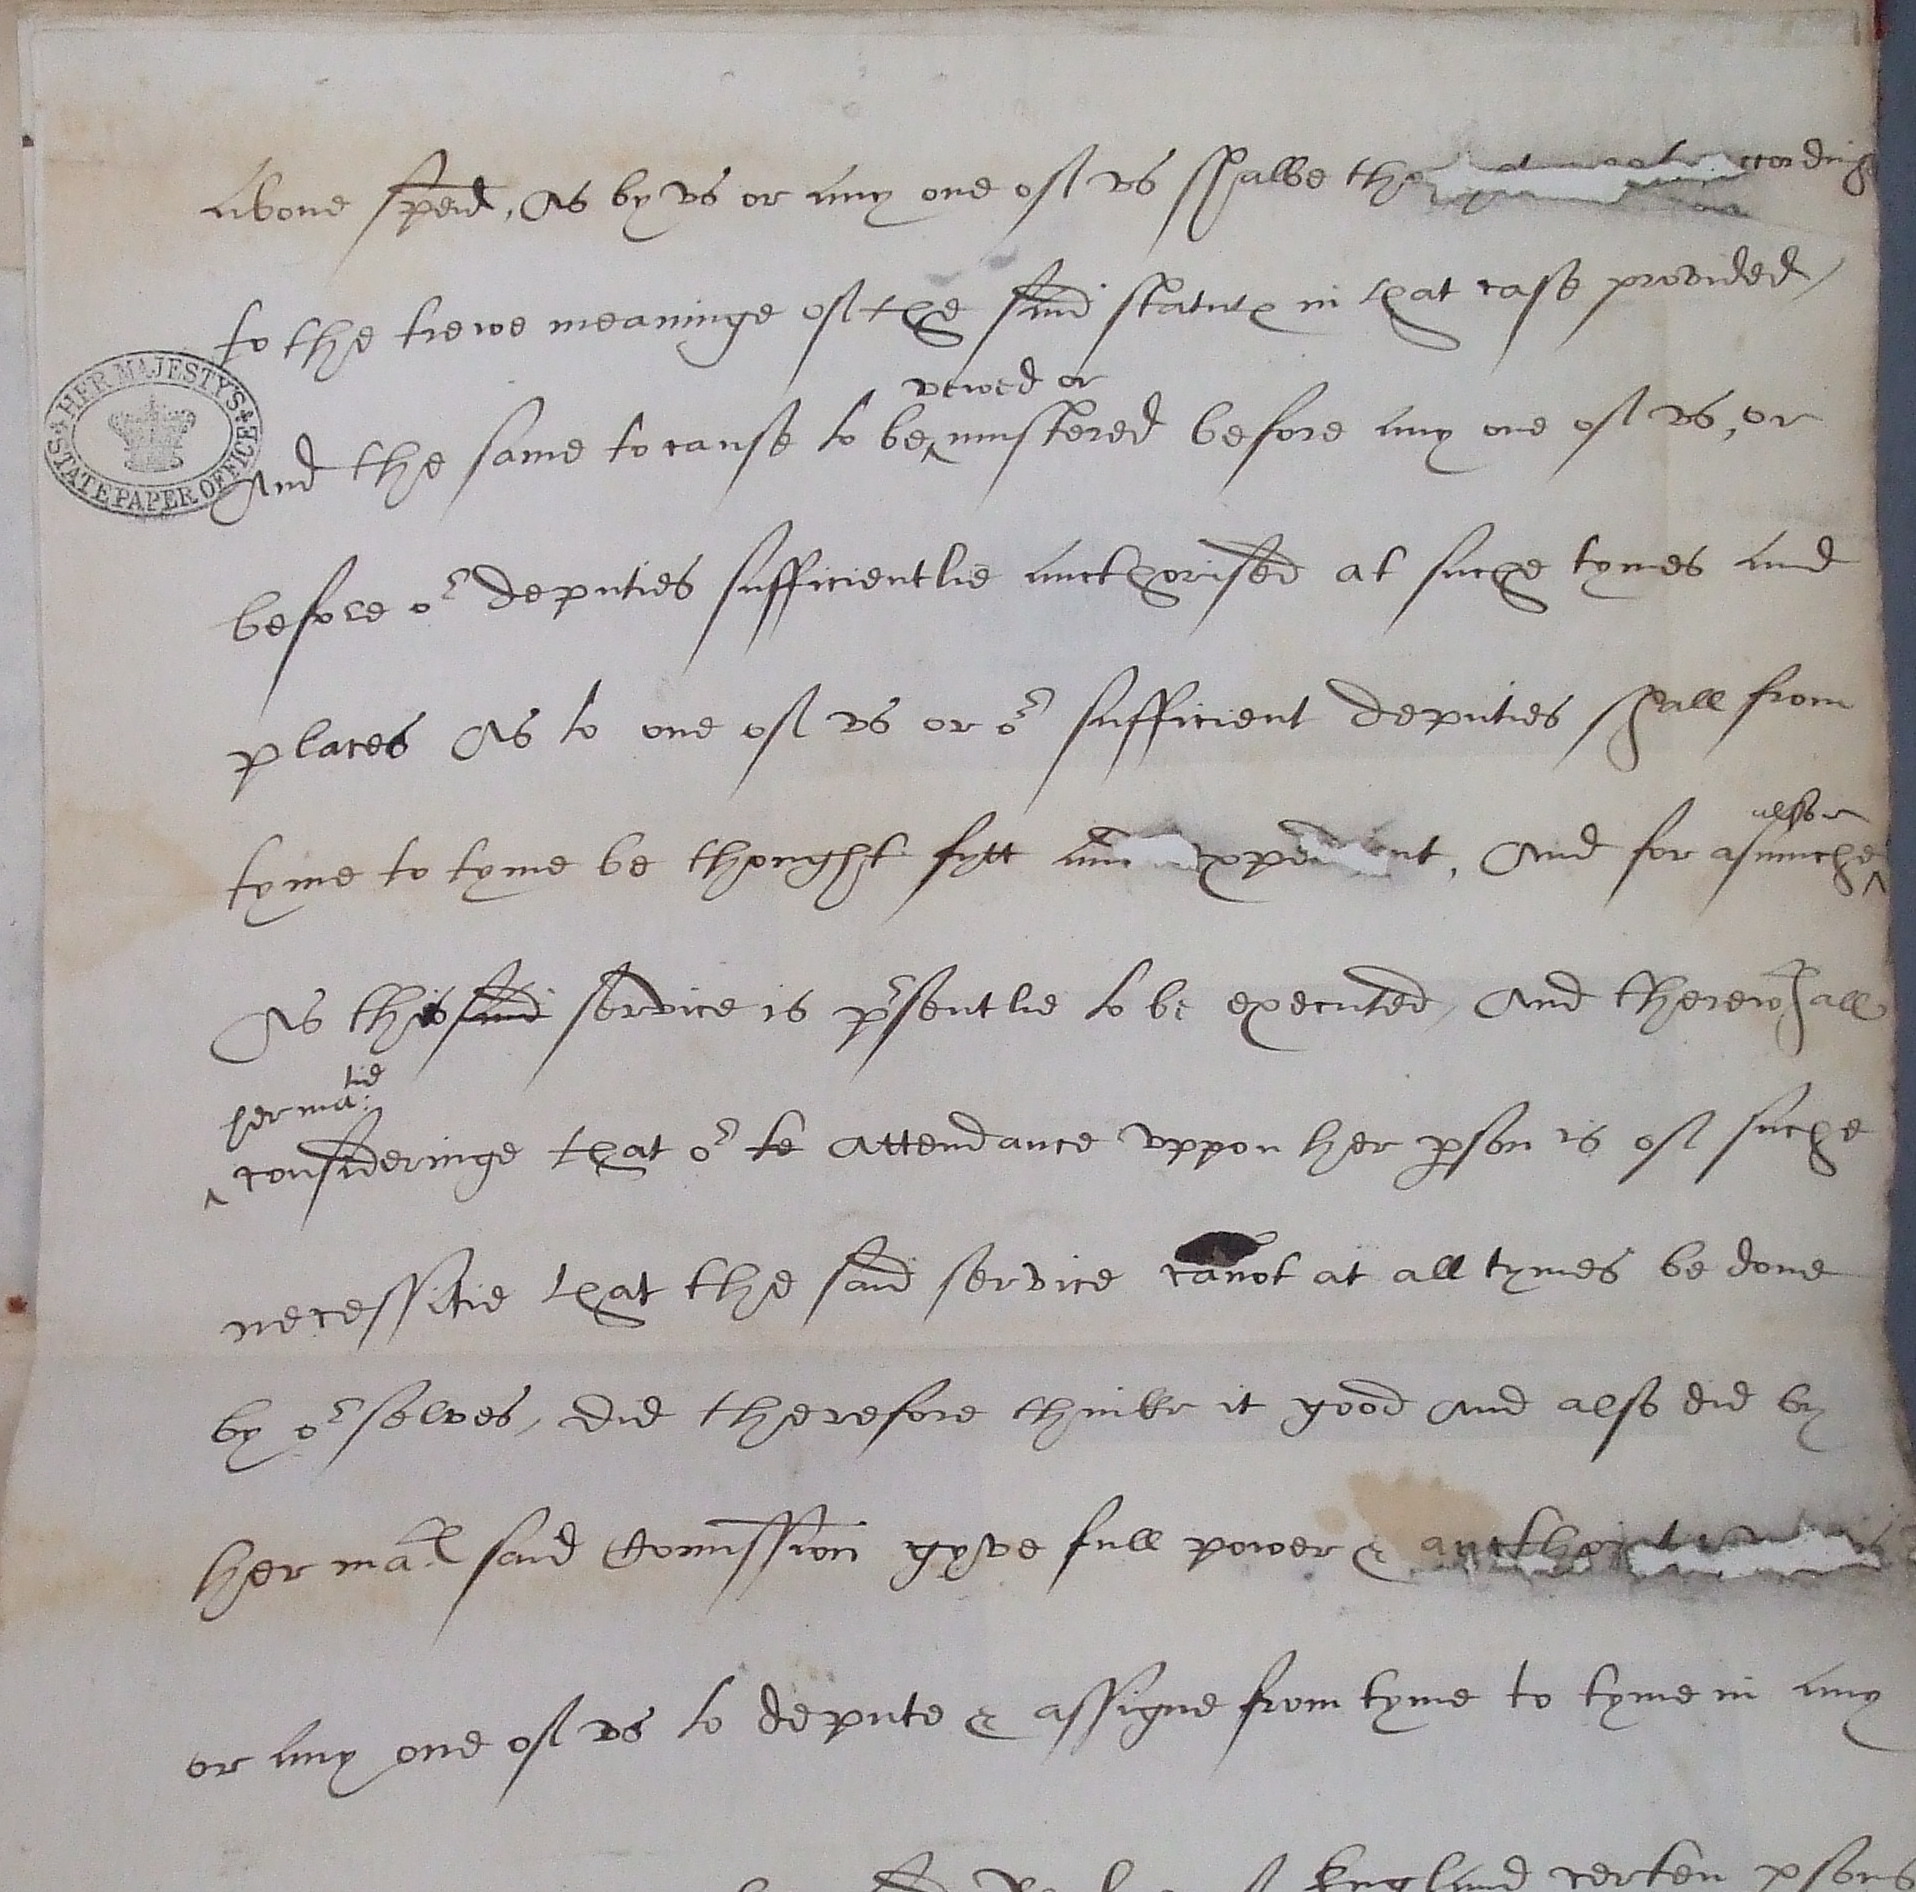 above specid, As by vs or any one of vs shalbe accordinge
to the trewe meaninge of the said statute in that case provided,
vewed or
And the same to cause to be mustered before any one of vs, or
HER MAJESTY'S STATE PAPER OFFICE
before or deputies sufficientlie aucthorised at suche tymes and
places As to one of vs or or sufficient deputies shall from
alsoe
tyme to tyme be thought fytt and expedient, And for asmuche
As this said service is prsentlie to be executed, And therewth all
her matie
consideringe that or attendance vppon her pson is of suche
necessitie that the said service canot at all tymes be done
by or selves, did therefore thinke it good and also did by
her mats said Comission gyve full power & aucthoritie
or any one of vs to depute & assigne from tyme to tyme in any
England certen psons